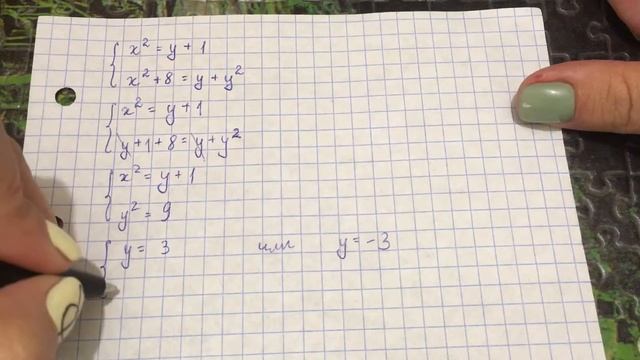 x² = y + 1
x² + 8 = y + y²
x² = y + 1
y + 1 + 8 = y + y²
x² = y + 1
y² = 9
y = 3 или y = -3